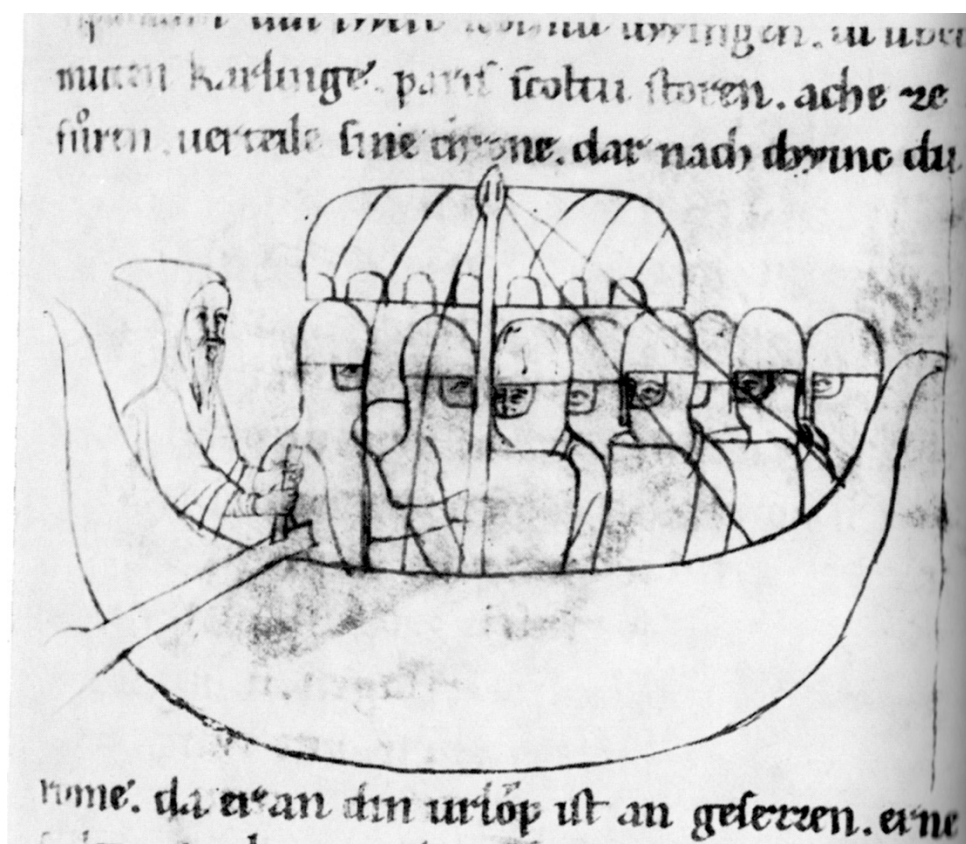 dwingen.
Karlinge. paris ſcoltu ſtoren. ache ze
fůren. uerteile ſine chrone. dar nach dwinc du
rome. da er an din urlǒp iſt an geſezzen. er ne